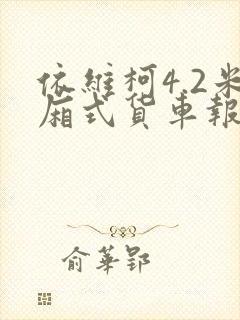 依維柯4.2米
廂式貨車報
俞華郢